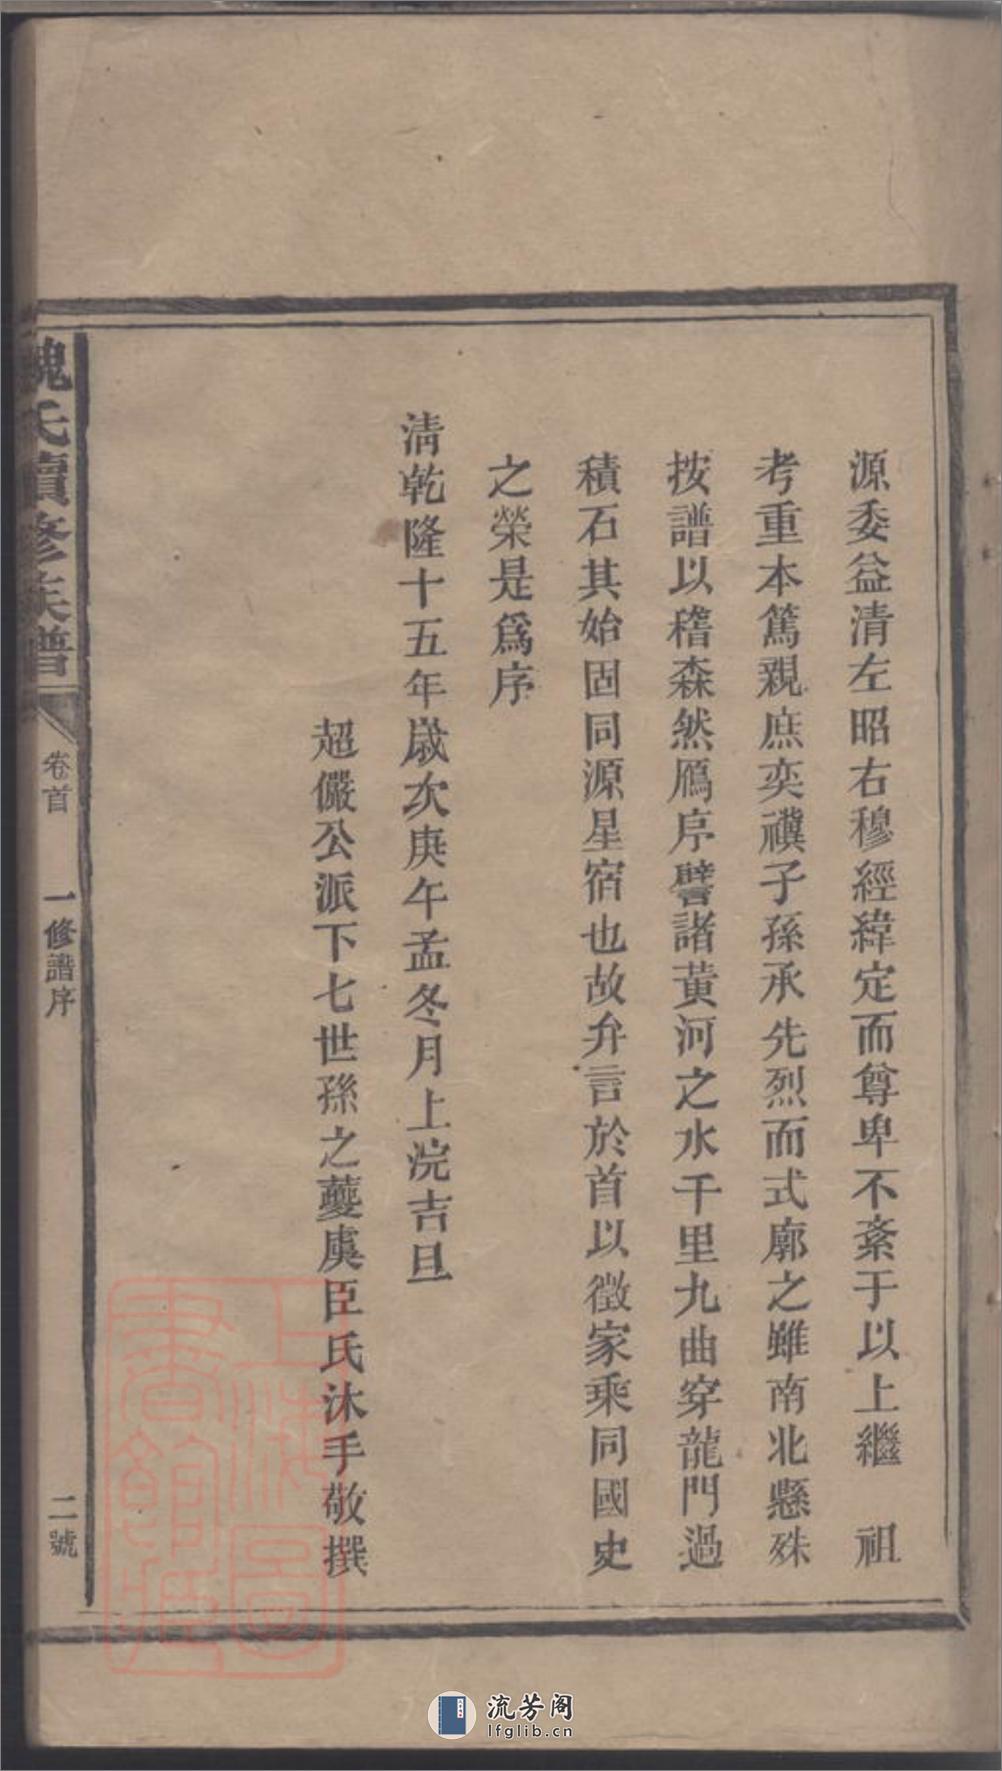 源委益清左昭右穆經緯定而尊卑不紊于以上繼　祖
考重本篤親庶奕禩子孫承先烈而式廓之雖南北懸殊
按譜以稽森然鴈序譬諸黃河之水千里九曲穿龍門過
積石其始固同源星宿也故弁言於首以徵家乘同國史
之榮是爲序
清乾隆十五年歲次庚午孟冬月上浣吉旦
超儼公派下七世孫之夔虞臣氏沐手敬撰
魏氏續修族譜
卷首
一修譜序
二號
上海圖書館藏
流芳阁
lfglib.cn